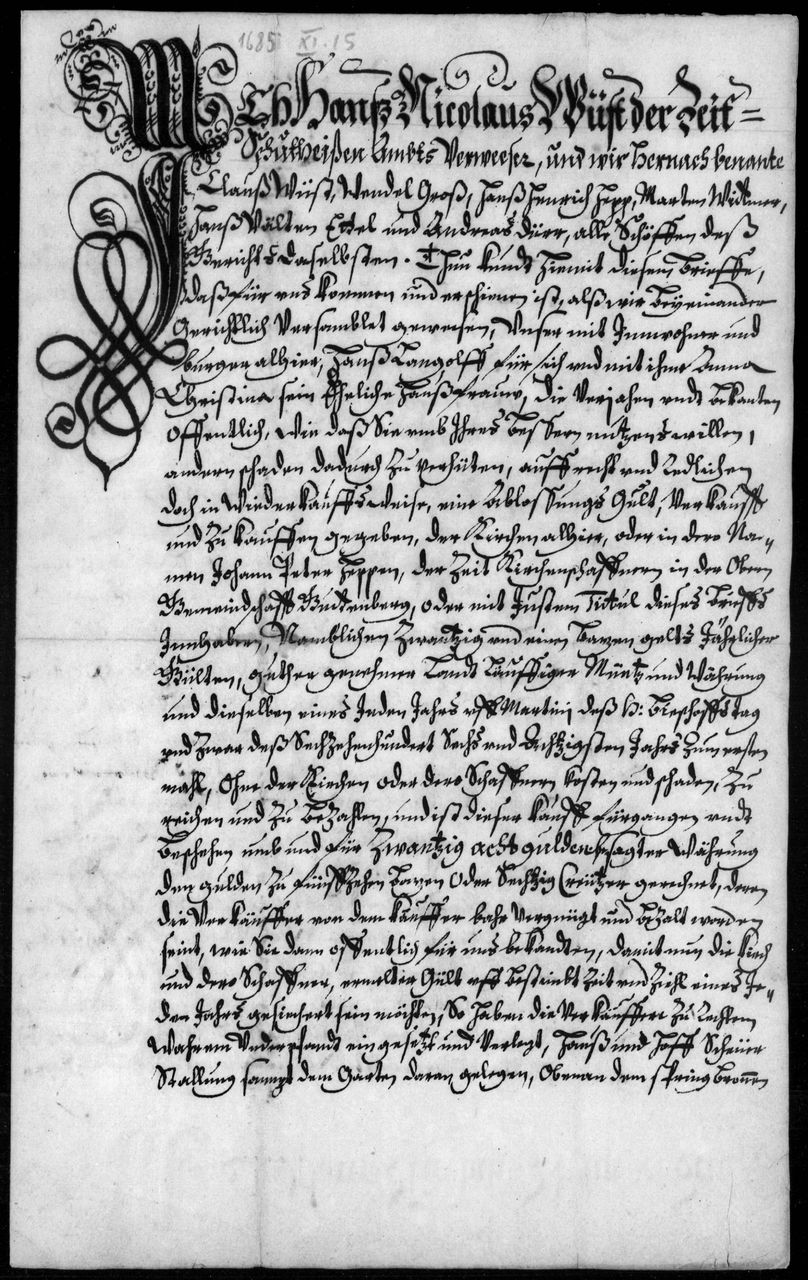 1685 XI. 15
Ich Hanß Nicolaus Wüst der Zeit =
Schultheißen Ambts Verweeser, und wir hernach benante
Clauß Wüst, Wendel Groß, Hanß Henrich Hepp, Marten Widtmer,
Hanß Välten Ettel und Andreas Dürr, alle Schöffen deß
Gerichts daselbsten. Thun kundt hiemit diesem brieffe,
daß für uns kommen und erschienen ist, alß wir beyeinander
Gerichtlich Versamblet gewesen, Unser mit Innwohner und
burger alhier, Hanß Langolff für sich und mit ihme Anna
Christina sein Eheliche Haußfrauw, die Verjahen undt bekanten
offentlich, wie daß Sie umb Ihres bessern nutzens willen,
andern schaden dadurch zu verhüten, auffrecht und Redlichen
doch in Wiederkauffs weise, eine Ablossungs Gült, Verkaufft
und zu kauffen gegeben, der Kirchen alhier, oder in dero Na=
men Johann Peter Heppen, der Zeit Kirchenschaffnern in der Obern
Gemeindschafft Guttenberg, oder mit Justem Titul dieses brieffs
Innhabern, Namblichen Zwantzig und einen batzen gelts Jährlicher
Gülten, guther genehmer Landt läuffiger Müntz und Währung
und dieselben eines Jeden Jahrs uff Martinj deß H: bieschoffs tag
und zwar deß Sechzehenhundert Sechs und Achtzigsten Jahrs zum ersten
mahl, Ohne der Kirchen oder dero Schaffnern kosten und schaden, zu
reichen und zu bezahlen, und ist dieser kauff fürgangen undt
beschehen umb und für Zwantzig acht gulden besagter Währung
den gulden zu fünffzehen batzen Oder Sechtzig Creützer gerechnet, deren
die Verkäuffer von dem käuffer bahr Vergnügt und bezalt worden
seint, wie Sie dann offentlich für uns bekandten, damit nun die kirch
und dero Schaffner, ermelter Gült uff bestimbt Zeit und Ziehl eines Je=
den Jahrs gesichert sein möchten, So haben die Verkäuffere zu Rechtem
Wahrem Underpfandt eingesetzt und Verlegt, Hauß und Hoff Scheüer
Stallung sampt dem Garten daran gelegen, Obenan dem spring bronnen